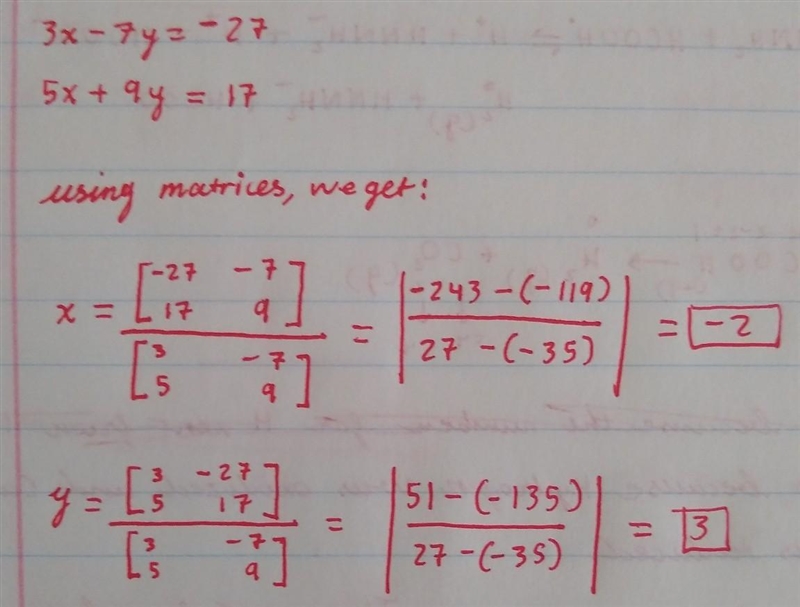 3x - 7y = -27
5x + 9y = 17
using matrices, we get:
x = [-27 -7
17 9] / [3 -7
5 9] = |-243 - (-119) / 27 - (-35)| = -2
y = [3 -27
5 17] / [3 -7
5 9] = |51 - (-135) / 27 - (-35)| = 3